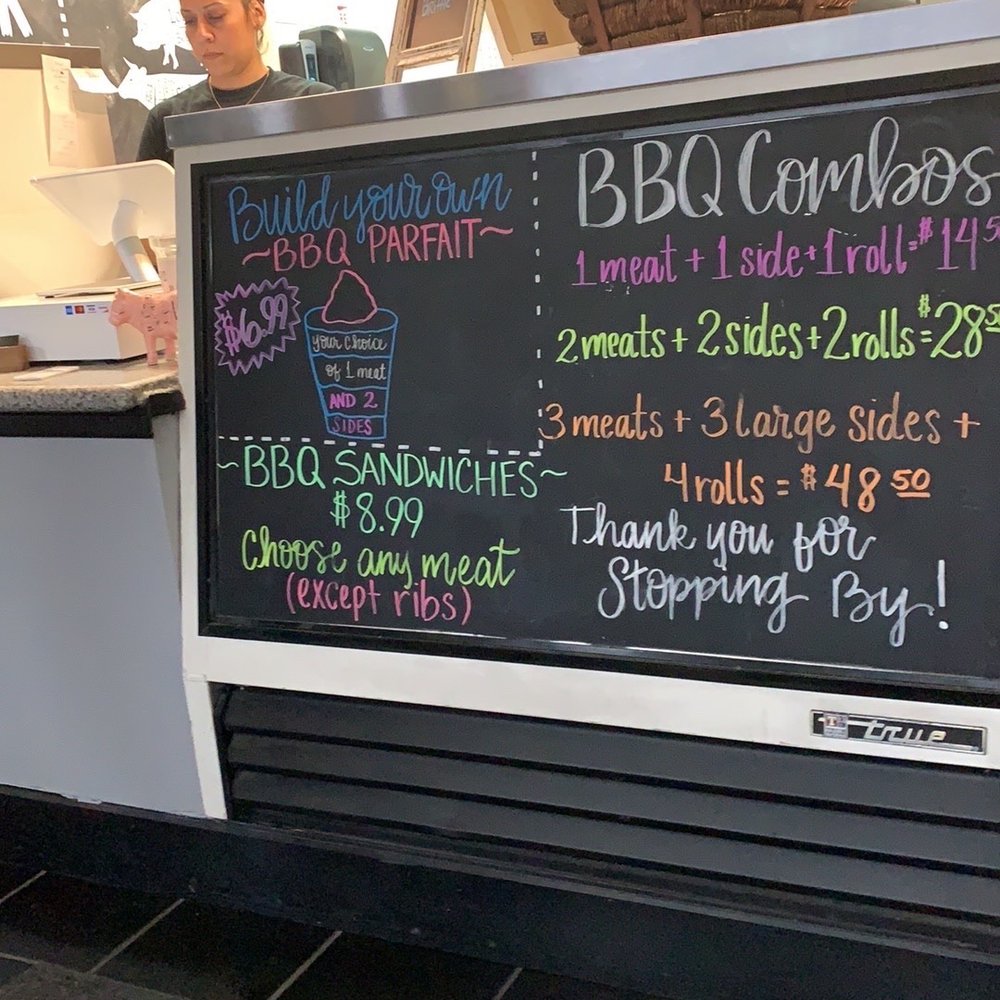 Build your own
~BBQ PARFAIT~
$6.99
your choice
of 1 meat
AND 2
SIDES
~BBQ SANDWICHES~
$8.99
Choose any meat
(except ribs)
BBQ Combos
1 meat + 1 side + 1 roll = $14
2 meats + 2 sides + 2 rolls = $28
3 meats + 3 large sides +
4 rolls = $48 50
Thank you for
Stopping By!
true